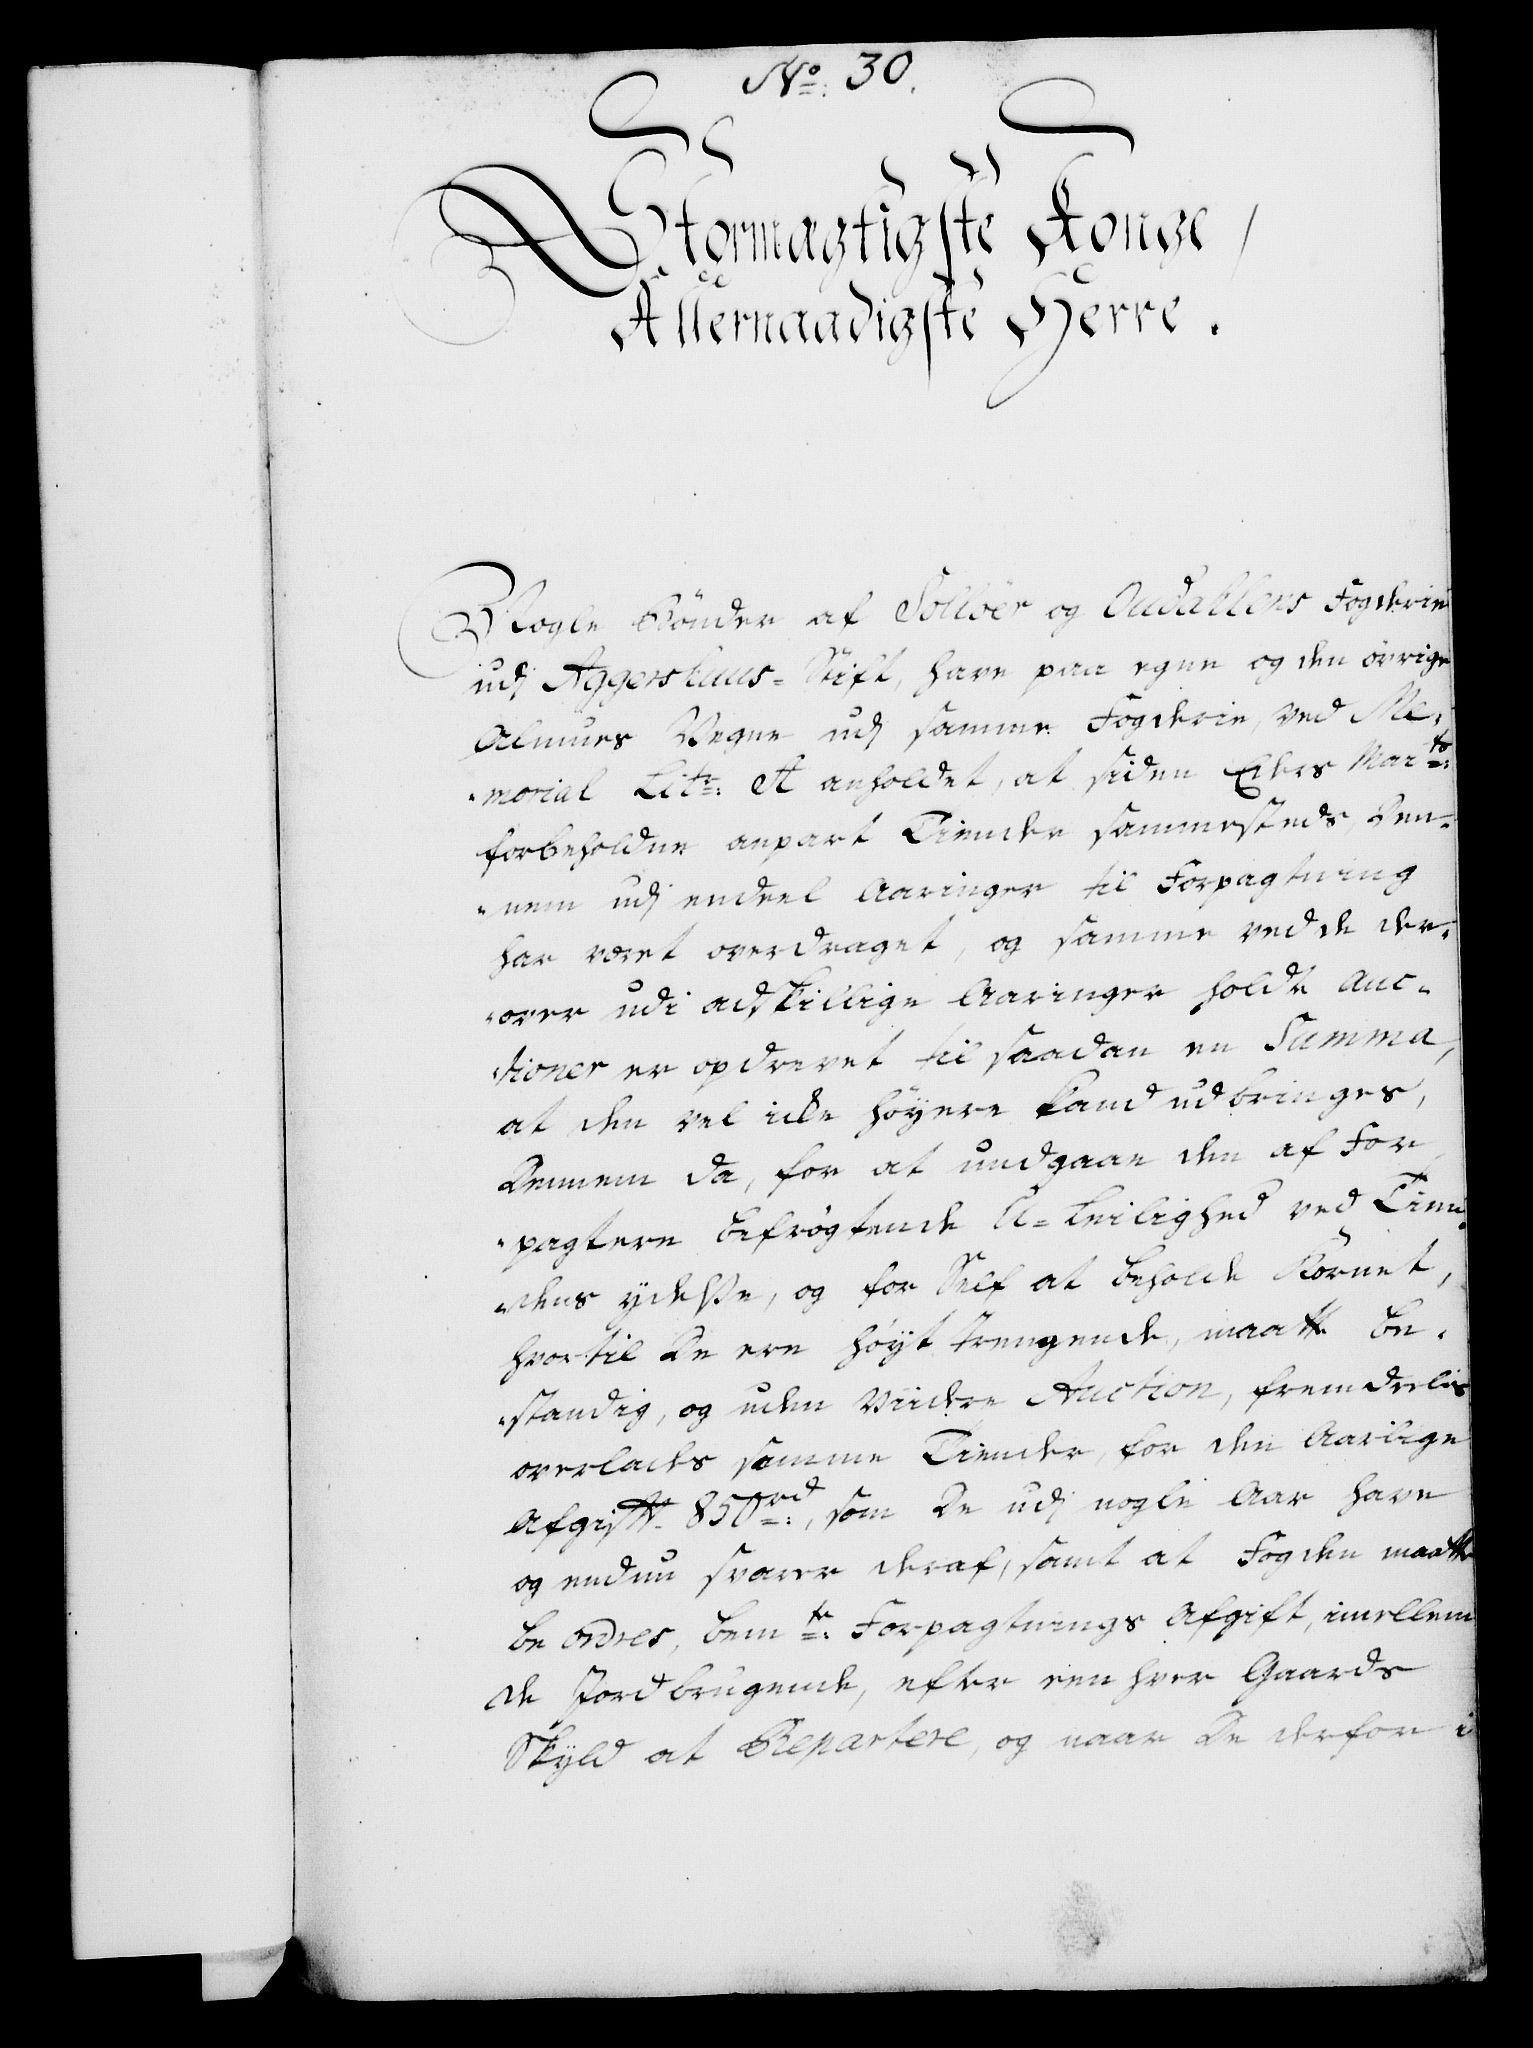 No. 30.
Stormægtigste Konge,
Allernaadigste Herre.
Nogle Bönder af Solloer og Oudallens Fogderie
udj Aggershuus- Stift, have paa egne og den övrige
Almues Vegne udj samme Fogderie, ved Me-
-morial Litr: A anholdet, at siden Eders Maits:
forbeholdne anpart Tiender sammesteds, Den-
-nem udj endeel Aaringer til Forpagtning
har været overdraget, og samme ved de der-
-over udi adskillige Aaringer holdte Auc-
-tioner er opdrevet til saadan en Summa,
at den vel icke höyere kand udbringes,
Dennem da, for at undgaae den af For-
-pagtere befrögtende U-leilighed ved Tien-
-dens ydelse, og for Self at beholde Kornet,
hvortil De ere höyt trengende, maatte be-
-standig, og uden Viidere Auction, fremdeelis
overlades samme Tiender, for den Aarlige
Afgift 850 rd:, som De udj nogle Aar have
og endnu svarer deraf, samt at Fogden maatte
beordres, bemte: Forpagtnings Afgift, imellem
de Jordbrugende, efter een hver Gaards
Skyld at Repartere, og naar De derfor i